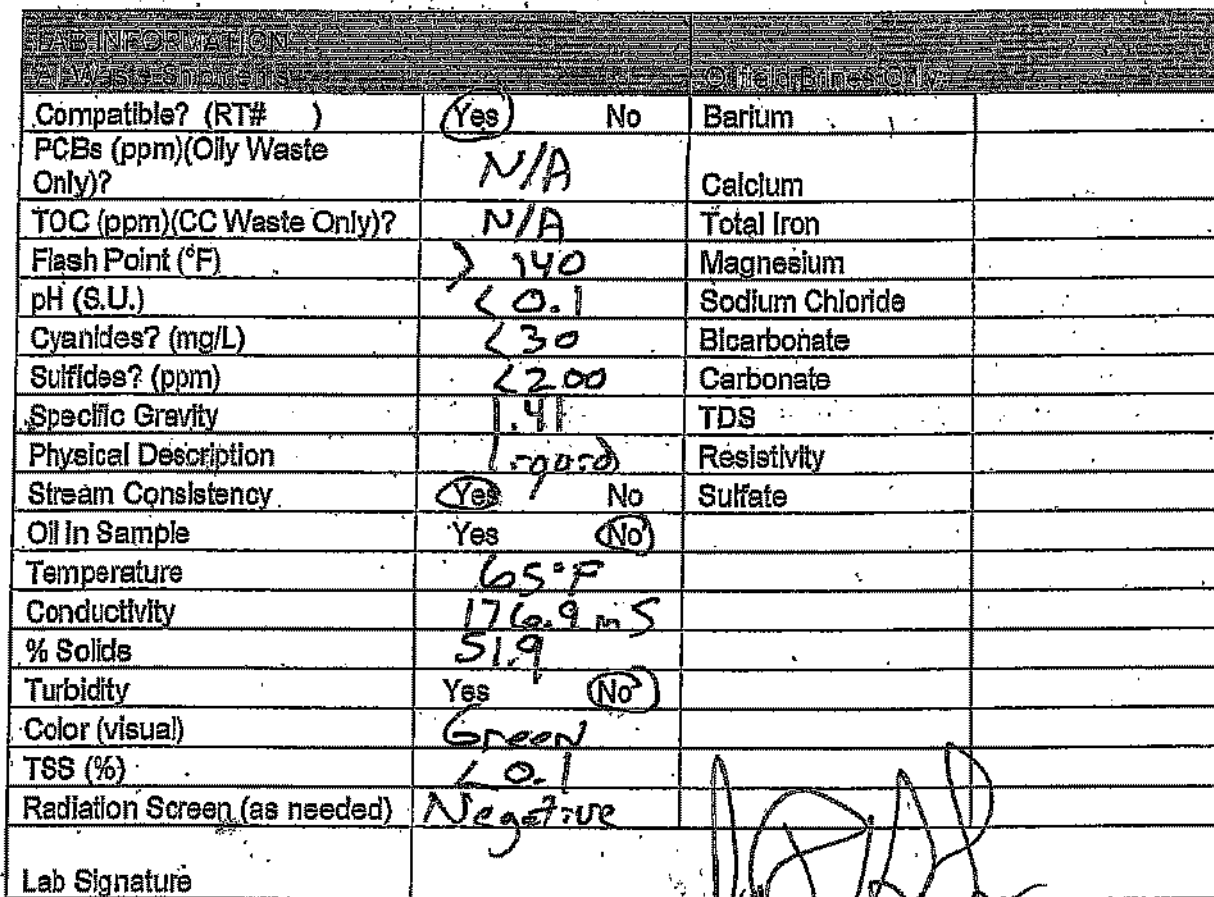 LAB INFORMATION
All Waste Shipments Oilfield Brines Only
Compatible? (RT# ) Yes No Barium
PCBs (ppm)(Oily Waste
Only)? N/A Calcium
TOC (ppm)(CC Waste Only)? N/A Total Iron
Flash Point (°F) > 140 Magnesium
pH (S.U.) < 0.1 Sodium Chloride
Cyanides? (mg/L) <30 Bicarbonate
Sulfides? (ppm) <200 Carbonate
Specific Gravity 1.41 TDS
Physical Description Liquid Resistivity
Stream Consistency Yes No Sulfate
Oil In Sample Yes No
Temperature 65°F
Conductivity 176.9 mS
% Solids 51.9
Turbidity Yes No
Color (visual) Green
TSS (%) < 0.1
Radiation Screen (as needed) Negative
Lab Signature